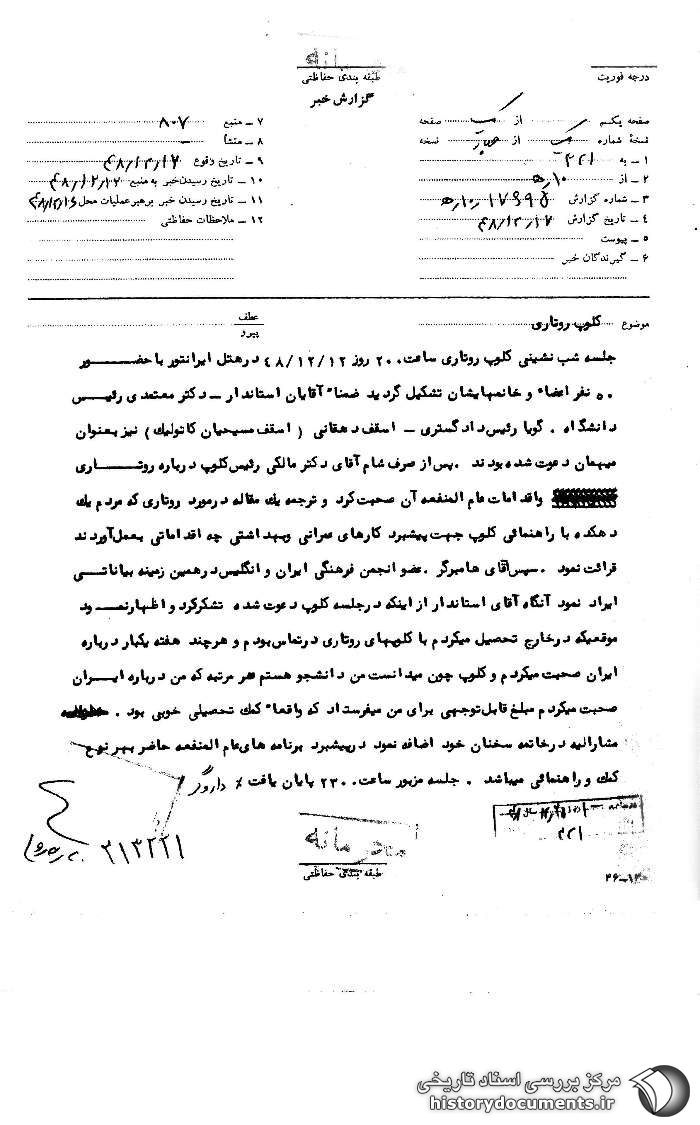 محرمانه
درجه فوریت
طبقه بندی حفاظتی
گزارش خبر
صفحه یکم از یک صفحه
نسخهٔ شماره یک از چهار نسخه
۱ ـ به ۳۴۱
۲ ـ از ۱۰ ه
۳ ـ شماره گزارش
۴ ـ تاریخ گزارش ۴۸/۱۲/۱۷
۵ ـ پیوست
۶ ـ گیرندگان خبر
۷ ـ منبع ۸۰۷
۸ ـ منشأ
۹ ـ تاریخ وقوع
۱۰ ـ تاریخ رسیدن خبر به منبع
۱۱ ـ تاریخ رسیدن خبر برهبر عملیات محل
۱۲ ـ ملاحظات حفاظتی
موضوع کلوپ روتاری
عطف
پیرو
جلسه شب نشینی کلوپ روتاری ساعت ۲۰۰۰ روز ۴۸/۱۲/۱۲ در هتل ایرانتور با حضور
۵۰ نفر اعضاء و خانمهایشان تشکیل گردید ضمناً آقایان استاندار ـ دکتر معتمدی رئیس
دانشگاه . گویا رئیس دادگستری ـ اسقف دهقانی ( اسقف مسیحیان کاتولیک ) نیز بعنوان
میهمان دعوت شده بودند . پس از صرف شام آقای دکتر مالکی رئیس کلوپ درباره روتاری
واقدامات عام المنفعه آن صحبت کرد و ترجمه یک مقاله در مورد روتاری که مردم یک
دهکده با راهنمائی کلوپ جهت پیشبرد کارهای عمرانی وبهداشتی چه اقداماتی بعمل آوردند
قرائت نمود . سپس آقای هامبرگر . عضو انجمن فرهنگی ایران و انگلیس در همین زمینه بیاناتی
ایراد نمود آنگاه آقای استاندار از اینکه در جلسه کلوپ دعوت شده تشکر کرد و اظهار نمود
موقعیکه در خارج تحصیل میکردم با کلوپهای روتاری در تماس بودم و هر چند هفته یکبار درباره
ایران صحبت میکردم و کلوپ چون میدانست من دانشجو هستم هر مرتبه که من درباره ایران
صحبت میکردم مبلغ قابل توجهی برای من میفرستاد که واقعاً کمک تحصیلی خوبی بود .
مشارالیه در خاتمه سخنان خود اضافه نمود در پیشبرد برنامه های عام المنفعه حاضر بهر نوع
کمک و راهنمائی میباشد . جلسه مزبور ساعت ۲۳۰۰ پایان یافت ٪ داروگر
۳۱۳۲۲۱
۳۴۱
محرمانه
طبقه بندی حفاظتی
مرکز بررسی اسناد تاریخی
historydocuments.ir